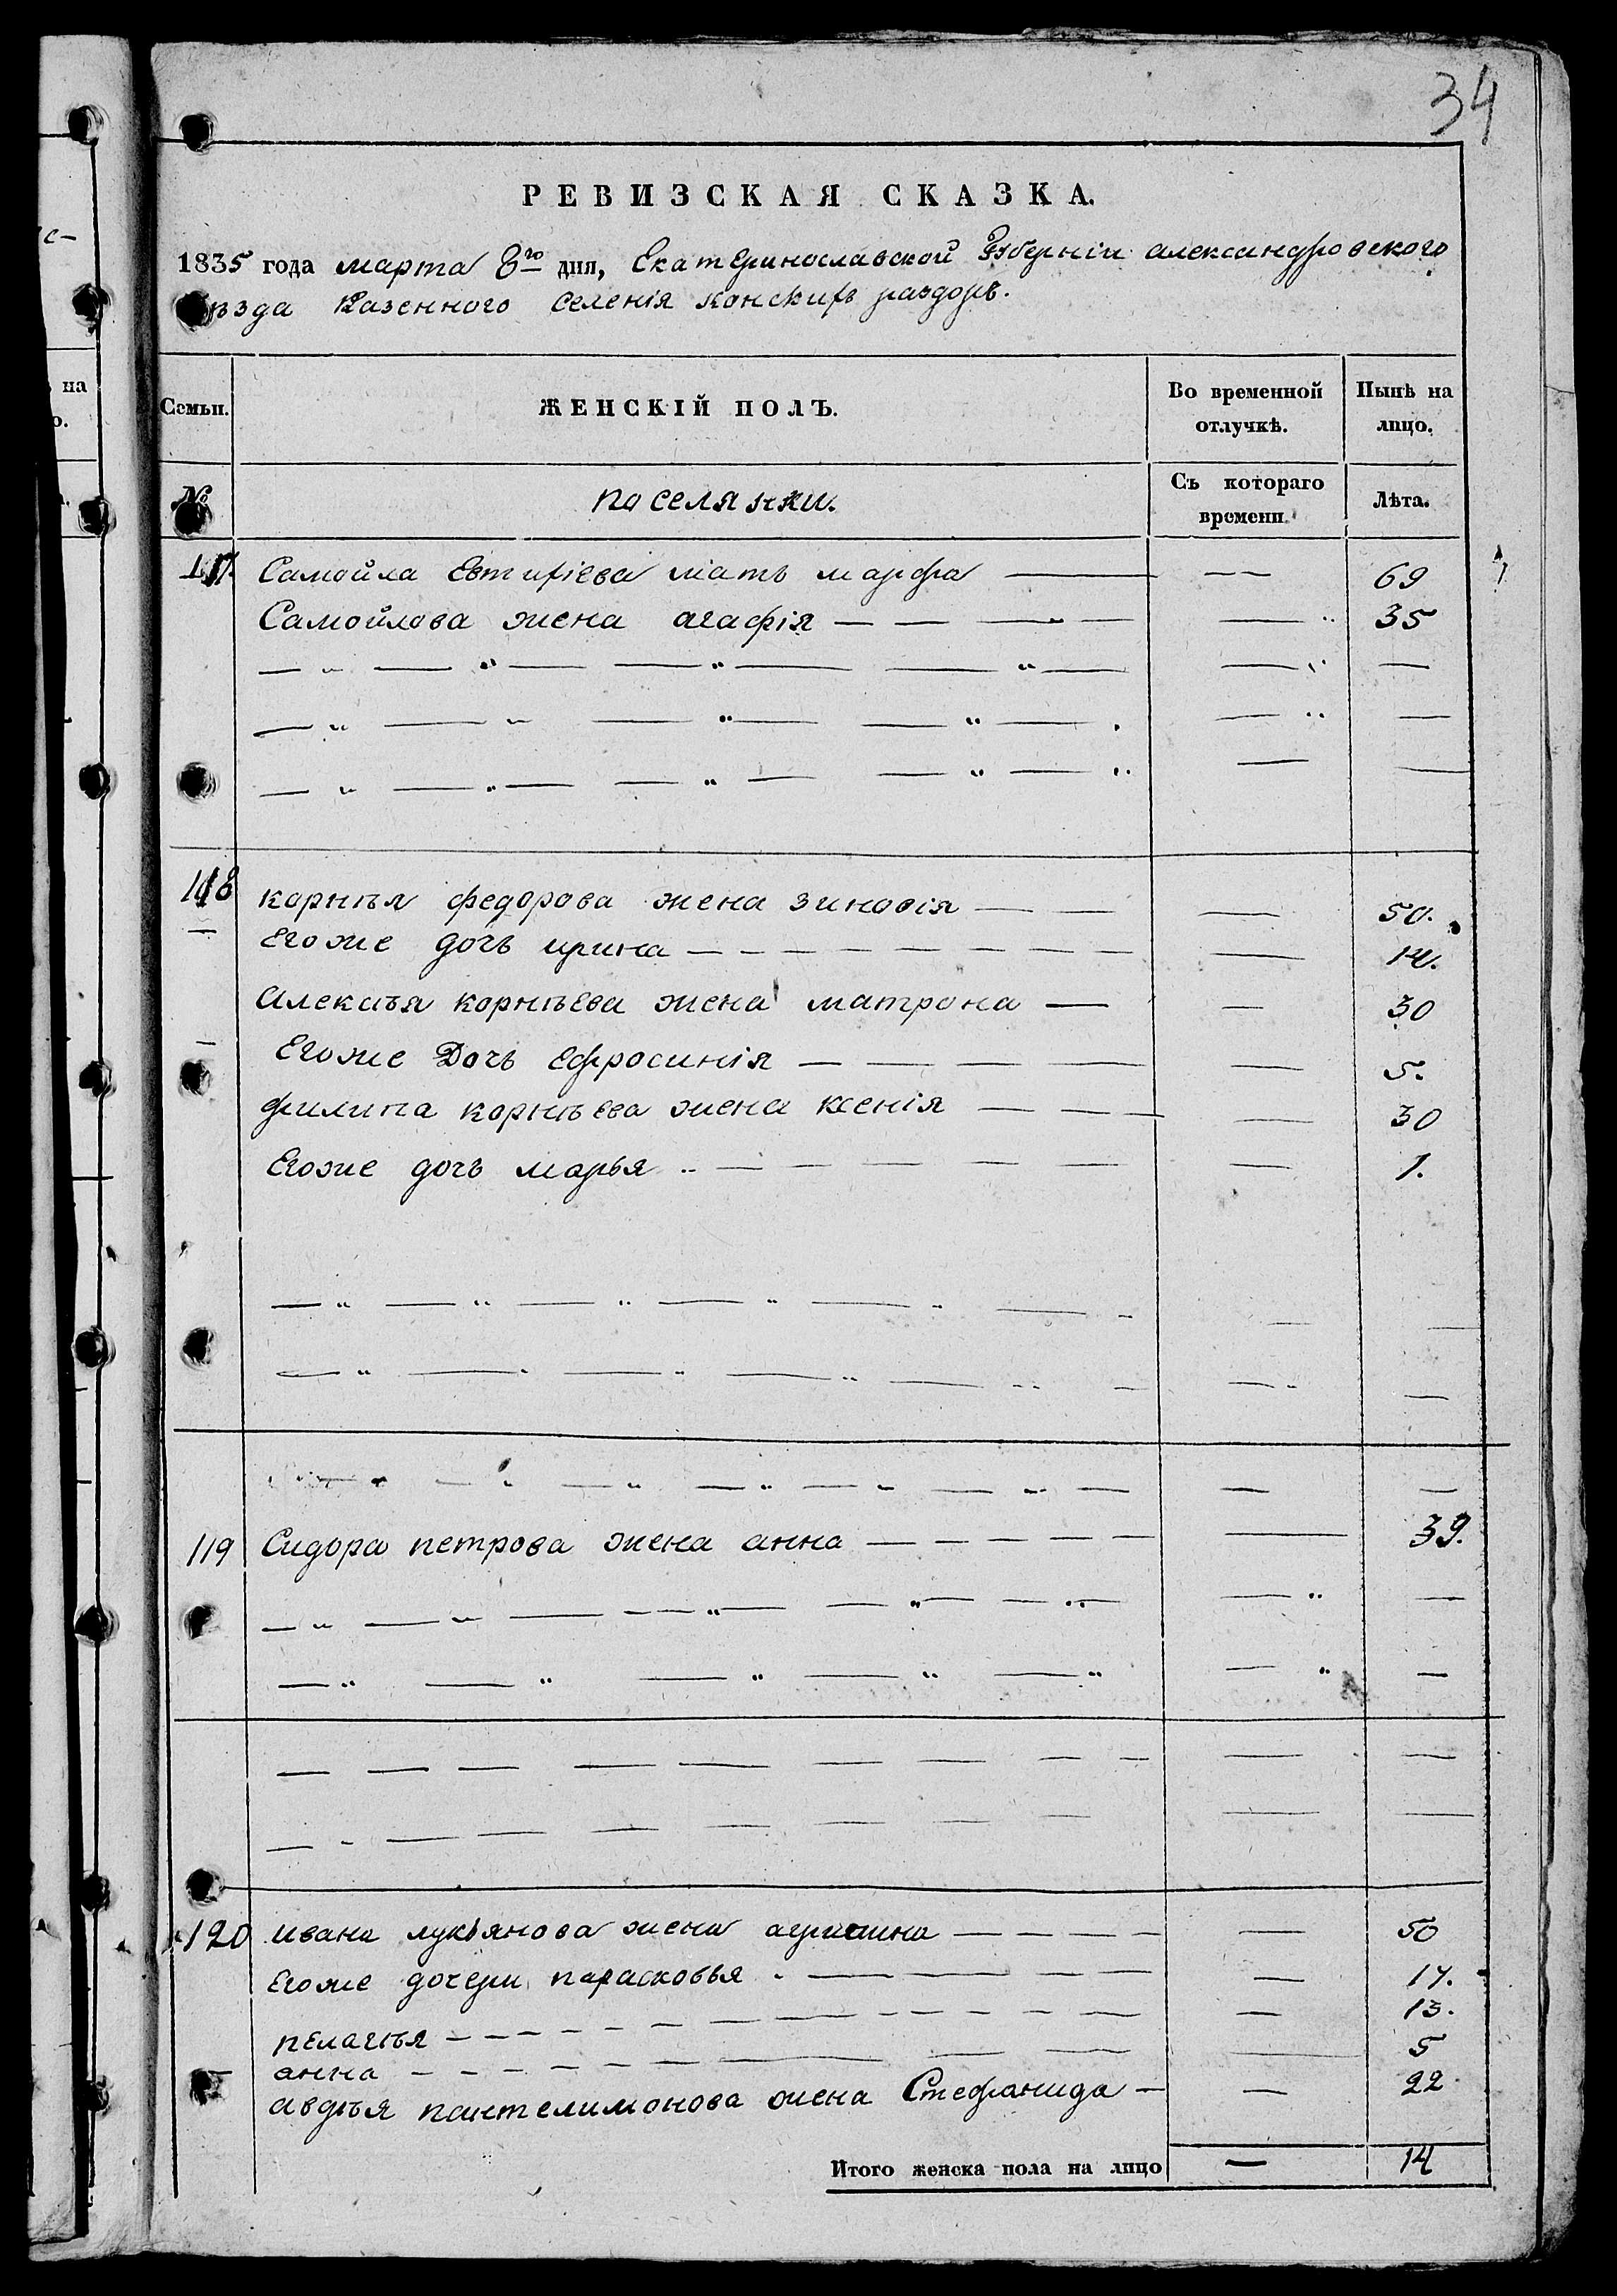 34
РЕВИЗСКАЯ СКАЗКА.
1835 года марта 8го дня, Екатеринославской Губерніи александровского
уѣзда Казенного Селенія Конскихъ раздоръ.
Семьи. ЖЕНСКІЙ ПОЛЪ. Во временной отлучкѣ. Нынѣ на лицо.
№ поселянки. Съ котораго времени. Лѣта.
117. Самойла Евтифіева мать марфа 69
Самойлова жена агафія 35
118 корнѣя федорова жена зиновія 50.
Егоже дочь ирина 14.
Алексѣя корнѣева жена матрона 30
Егоже Дочь Ефросинія 5.
филипа корнѣева жена ксенія 30
Егоже дочь марья 1.
119 Сидора петрова жена анна 39.
120 ивана лукьянова жена агрипина 50
Егоже дочери парасковья 17.
пелагѣя 13.
анна 5
авдѣя пантелимонова жена Стефанида 22
Итого женска пола на лицо — 14